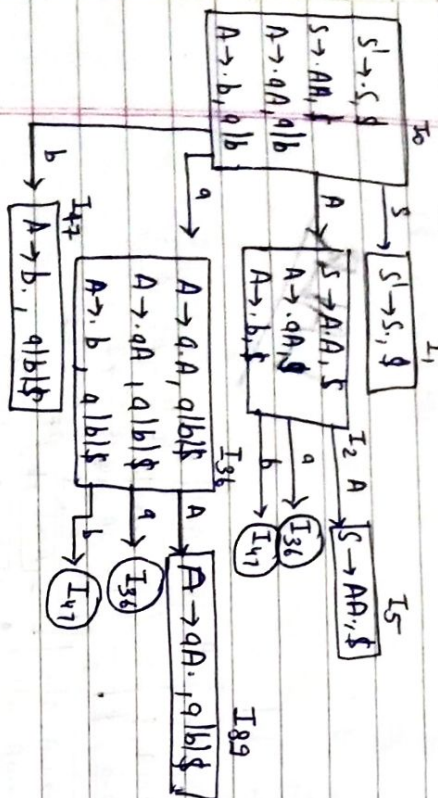 I0
S' → .S, $
S → .AA, $
A → .aA, a|b
A → .b, a|b
S
I1
S' → S., $
A
I2
S → A.A, $
A → .aA, $
A → .b, $
A
I5
S → AA., $
a
I36
b
I47
a
I36
A → a.A, a|b|$
A → .aA, a|b|$
A → .b, a|b|$
A
I89
A → aA., a|b|$
a
I36
b
I47
b
I47
A → b., a|b|$